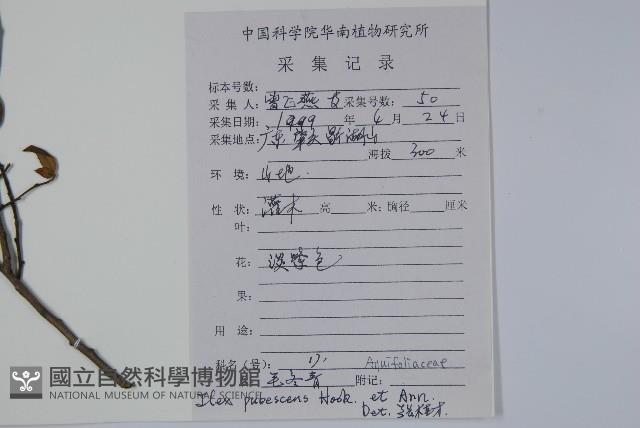 中国科学院华南植物研究所
采集记录
标本号数:
采集人: 曾飞燕 采集号数: 50
采集日期: 1999 年 4 月 24 日
采集地点: 广东 肇庆 鼎湖山
海拨 300 米
环境: 山地.
性状: 灌木 高 米: 胸径 厘米
叶:
花: 淡紫色
果:
用途:
科名(号): Aquifoliaceae
毛冬青 附记:
Ilex pubescens Hook. et Arn.
Det.
國立自然科學博物館
NATIONAL MUSEUM OF NATURAL SCIENCE